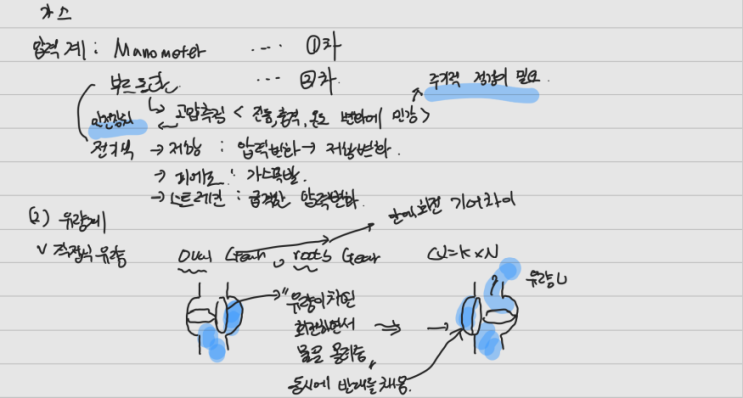 가스
압력계: Manometer ---- ①차
부르동관 ---- ②차. 주기적 점검이 필요.
안전장치 ↳ 고압측정 < 진동,충격,온도 변화에 민감>
전기식 → 저항 : 압력변화 → 저항변화.
→ 피에조 : 가스폭발.
→ 스트레인 : 급격한 압력변화.
(2) 유량계 기어차이
v 직접식 유량 Oval Gear, roots Gear Q=K×N
유량
"유량이 차면
회전하면서 ⇒ →
물을 올려줌"
동시에 반대로 채움.